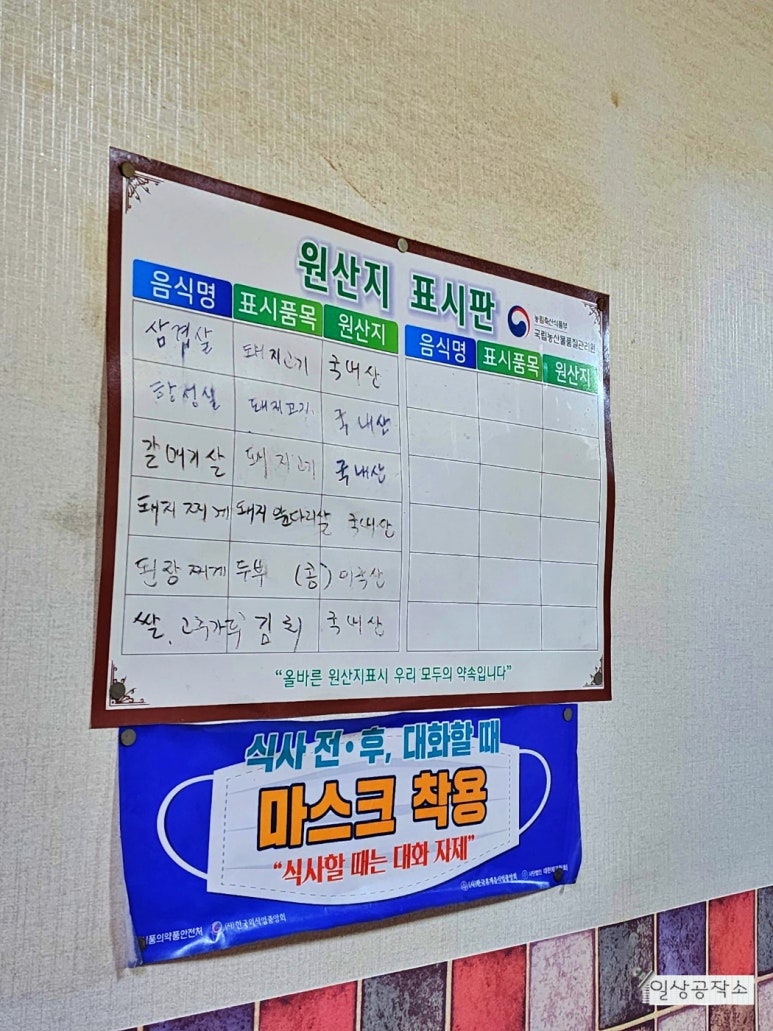 원산지 표시판
농림축산식품부
국립농산물품질관리원
음식명 표시품목 원산지 음식명 표시품목 원산지
삼겹살 돼지고기 국내산
항정살 돼지고기 국내산
갈매기살 돼지고기 국내산
돼지찌게 돼지 앞다리살 국내산
된장찌게 두부 (콩) 미국산
쌀, 고추가루 김치 국내산
"올바른 원산지표시 우리 모두의 약속입니다"
식사 전·후, 대화할 때
마스크 착용
"식사할 때는 대화 자제"
품의약품안전처 (사)한국외식업중앙회
일상공작소